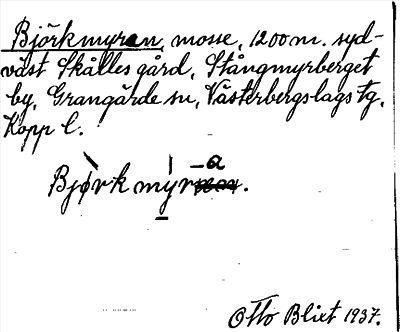 Björkmyran, mosse, 1200 m. syd-
väst Skålles gård, Stångmyrberget
by, Grangärde sn, Västerbergslags tg,
Kopp l.
Bjørkmyra.
Otto Blixt 1937.